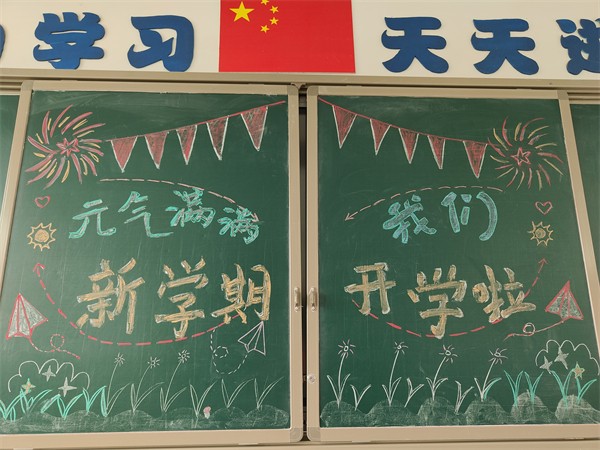 学习 天天
元气满满
新学期
我们
开学啦